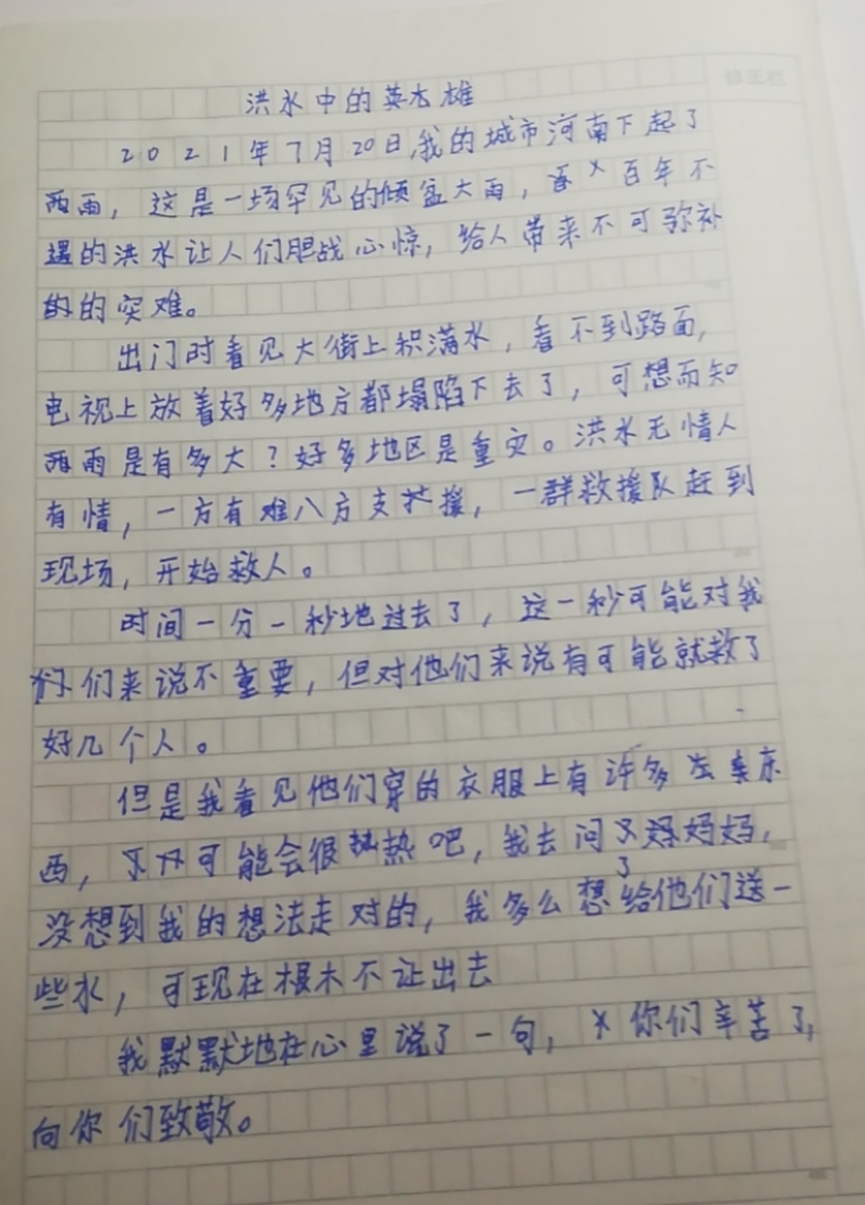 洪水中的英雄
2021年7月20日,我的城市河南下起了
雨,这是一场罕见的倾盆大雨,百年不
遇的洪水让人们胆战心惊,给人带来不可弥补
的的灾难。
出门时看见大街上积满水,看不到路面,
电视上放着好多地方都塌陷下去了,可想而知
雨是有多大?好多地区是重灾。洪水无情人
有情,一方有难八方支援,一群救援队赶到
现场,开始救人。
时间一分一秒地过去了,这一秒可能对我
们来说不重要,但对他们来说有可能就救了
好几个人。
但是我看见他们穿的衣服上有许多东
西,可能会很热吧,我去问了妈妈,
没想到我的想法是对的,我多么想给他们送一
些水,可现在根本不让出去
我默默地在心里说了一句,你们辛苦了,
向你们致敬。